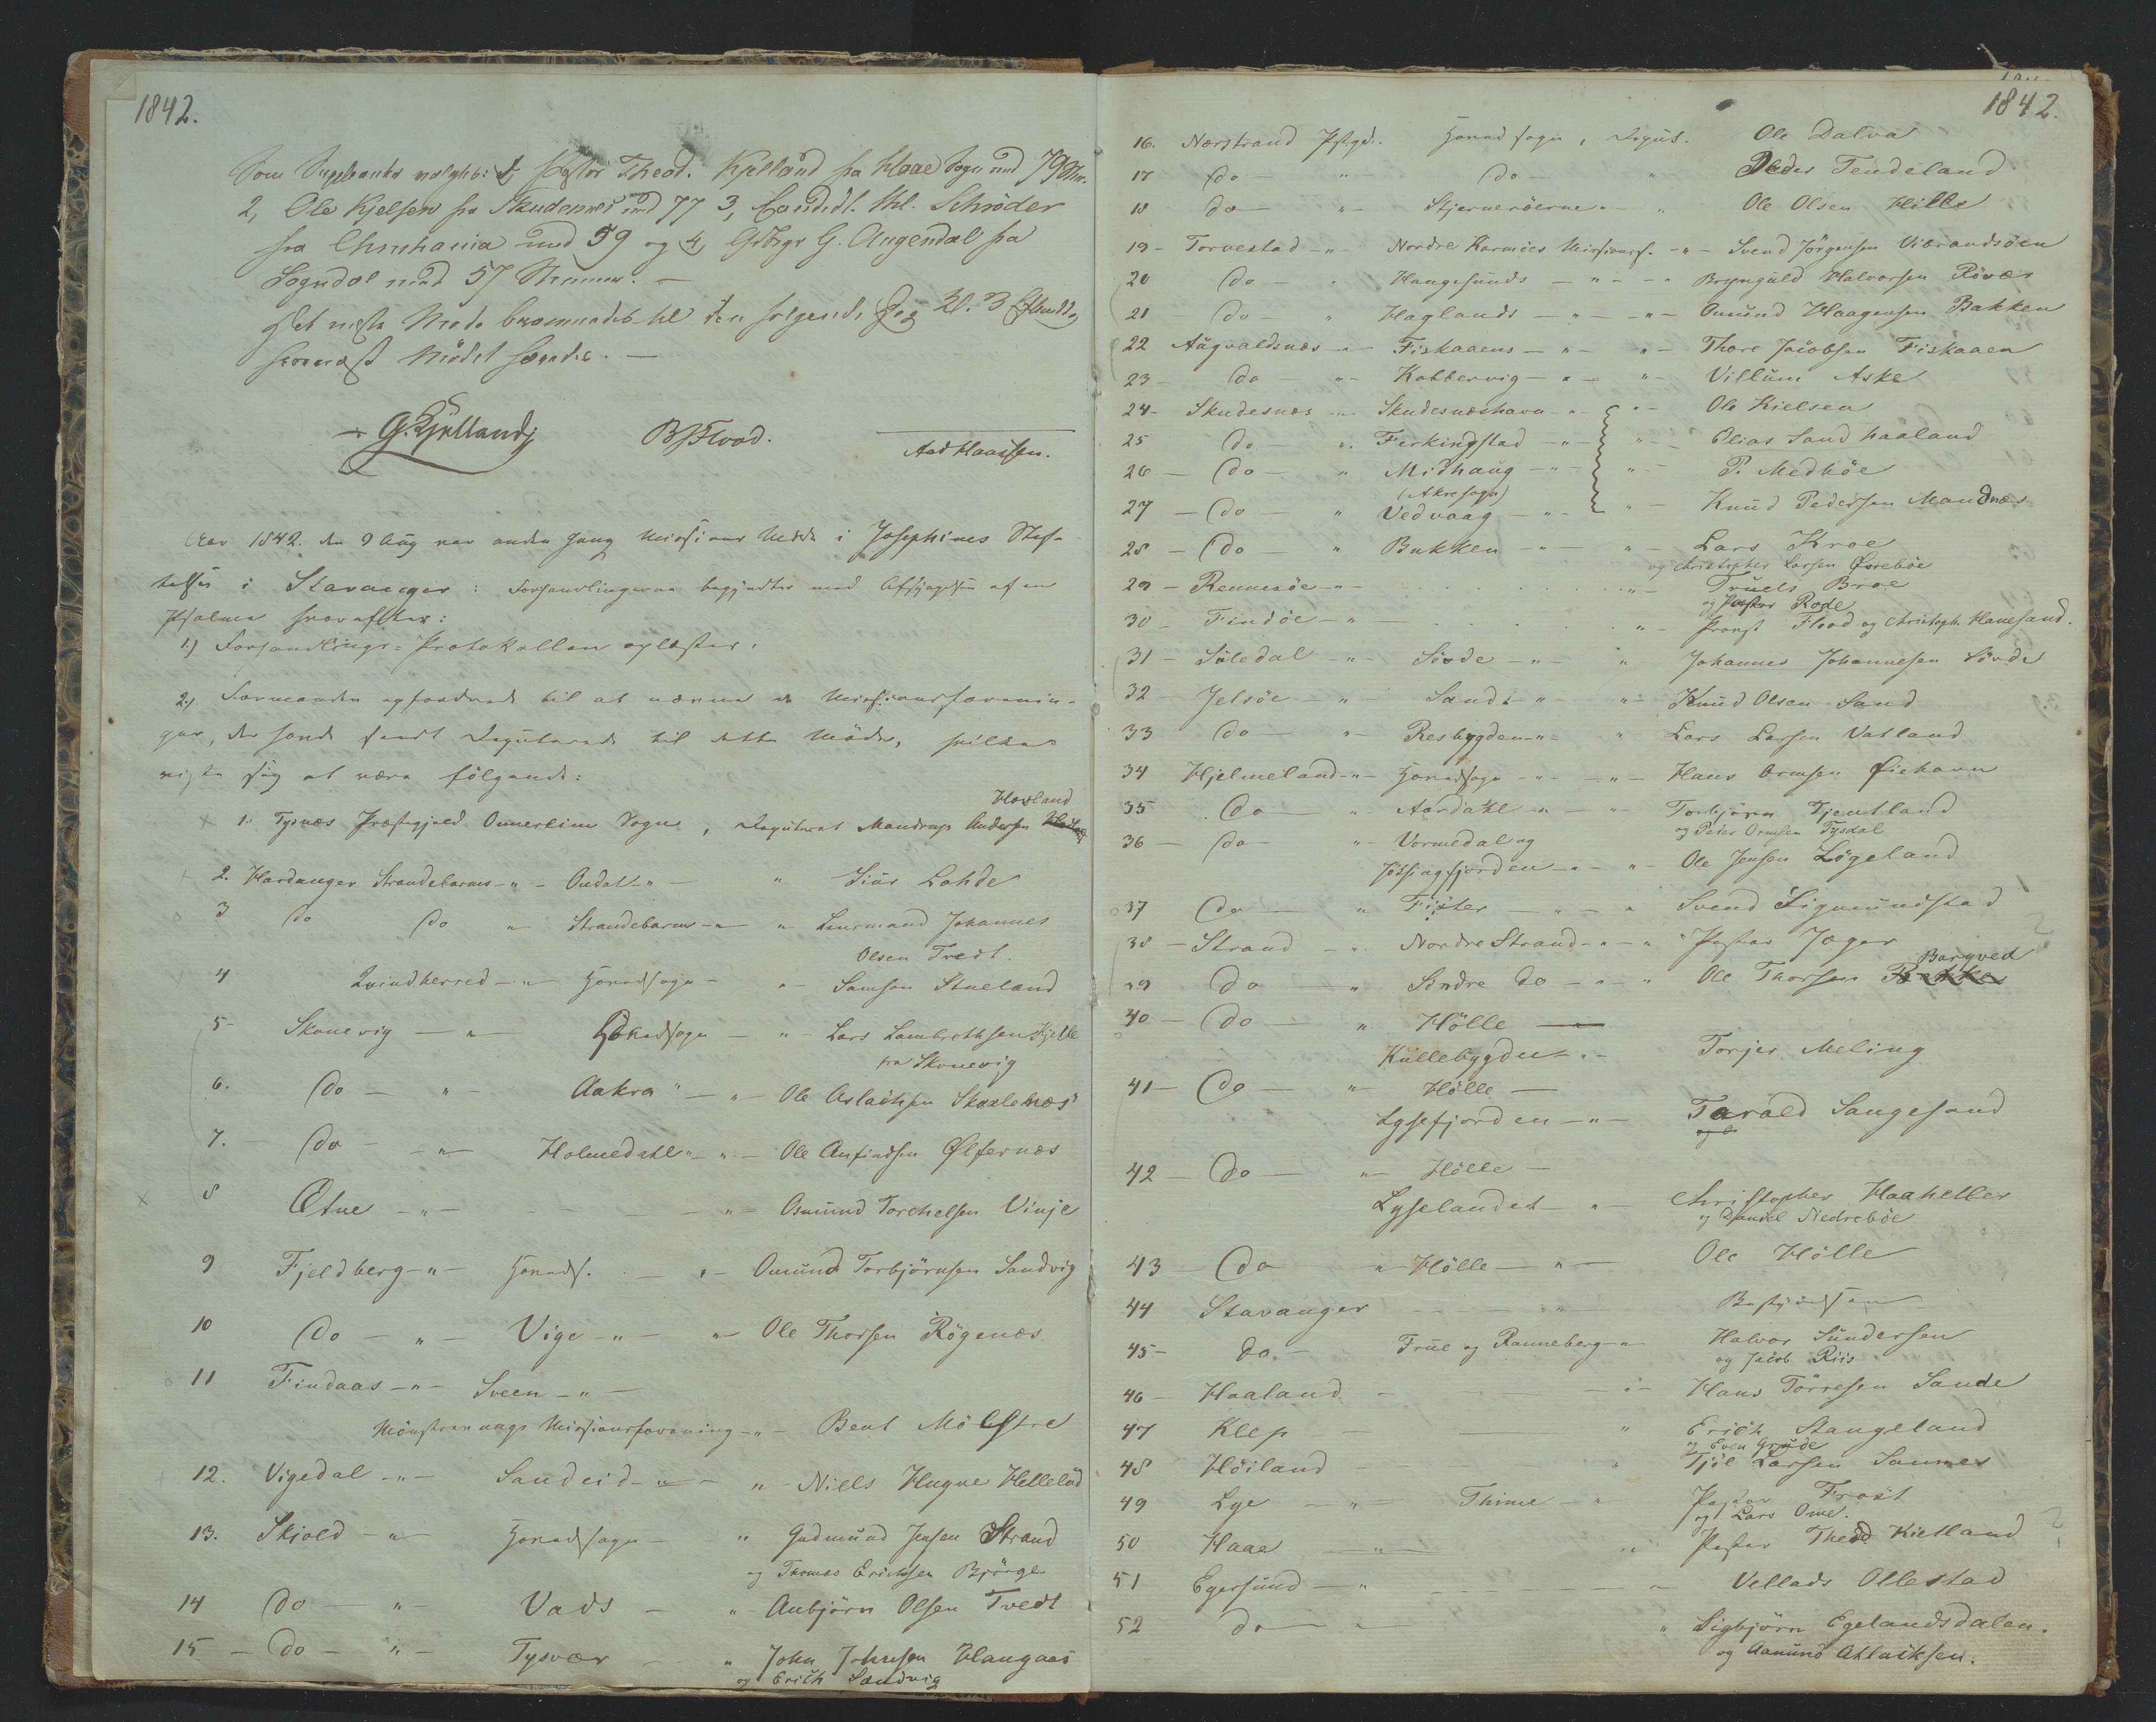 1842.
Som Suppleanter valgtes: 1, Pastor Theod. Kjelland fra Haae Sogn med 79 Stm.
2, Ole Kjelsen fra Skudesnes med 77 3, Candidt. thl. Schröder
fra Christiania med 59 og 4, G. Augendal fra
Sogndal med 57 Stemmer. —
Det neste Møde berammedes til den følgende Dag Kl. 3 Efterdd.
hvornæst Mödet hævedes. —
G. Kjelland BHFlood. Aad Haassen.
Aar 1842. den 9 Aug var anden Gang Missions Mödet i Josephines Stif-
telse i Stavanger: Forhandlingerne begyndter med Afsyngelsen af en
Psalme hvorefter:
1.) Forhandlings-Protokollen oplæstes.
2.) Formanden opfordrede til at nævne de Missionsforenin-
ger, der havde sendt Deputerede til dette Möde, hvilke
viste sig at være fölgende:
Hovland
1. Tysnæs Præstegjeld Onnereim Sogn, Deputeret Mandrup Andersen
2. Hardanger Strandebarms -"- Ondal -"- " Siur Lohde
3 do do " Strandebarm -"- " Lensmand Johannes
Olsen Tredt.
4 Qvindherred -"- Hovedsogn - "- Samson Stueland
5- Skonevig -"- Hovedsogn - " Lars Lambrethsen Kjelle
fra Skonevig
6. Do - "- Aakra " - "- Ole Aslachsen Skaalenæs
7. Do - "- Holmedahl "- "- Ole Anfindsen Ølfernæs
8 Etne -"- - "- Asmund Torchelsen Vinje
9 Fjeldberg -"- Hoveds. - "- Omund Torbjörnsen Sandvig
10 Do - "- Vige -"- "- Ole Thorsen Rögenæs
11 Findaas -"- Sveen -"-
Missionsforening -"- Bent Mölstre
12. Vigedal -"- Sandeid -"- "- Niels Hugne Hellelad
13. Skjold -"- Hovedsogn - " Gudmund Jensen Strand
og Thomas Erichsen Björge
14 Do - "- Vads - "- Anbjörn Olsen Tvedt
15 - Do - "- Tysvær - " John Johnsen Haugaas
og Erich Sandvig
1842.
16. Nærstrand Præstgd. Hoved sogn, Deput. Ole Dalva
17 Do - "- Do - " Peder Tendeland
18 Do - "- Stjerneröerne "- " Ole Olsen Hille
19 - Torvestad -"- Nordre Karmöes Missionsf. -"- Svend Jörgensen Vibrandsöen
20 Do - " Haugesunds - "- -"- Brynguld Halvorsen Rövær
21 - Do - " Haglands - "- -"- Omund Haagensen Bakken
22 Augvaldsnæs -"- Fiskaaens - "- "- Thore Jacobsen Fiskaaen
23 - Do - "- Kobbervig - "- "- Villum Aske
24 - Skudesnæs -"- Skudesnæshavn -"- "- Ole Kielsen
25 Do - ". Ferkingstad -"- "- Elias Sandhaaland
26 - Do - " Midhaug -"- "- P. Medböe
(Akre sogn)
27 - Do - " Vedvaag -"- "- Knud Pedersen Mandnæs
28 - Do - " Bukken -"- "- Lars Kroe
og Christopher Larsen Øvreböe
29 - Rennesöe -"- "- Truels Broe
og Pastor Rode
30 - Findöe -"- "- Provst Flood og Christoph. Hanesand.
31 - Suledal -"- Sövde -"- " Johannes Johannesen Sövde
32 - Jelsöe -"- Sands "- "- Knud Olsen Sand
33 Do - "- Resbygden -"- " Lars Larsen Vatland
34 Hjelmeland -"- Hovedsogn -"- -"- Hans Ormsen Fiehavn
35 Do - " Aardahl -"- "- Torbjörn Tjentland
og Peder Ormsen Tysdal
36 - Do - "- Vormedal og
Jössingfjorden -"- "- Ole Jensen Lögeland
37 Do - " Fister - "- " Svend Sigmundstad
38 - Strand -"- Nordre Strand -"- " Pastor Jæger
Bargved
39 Do - " Söndre Do - "- " Ole Thorsen
40 - Do - " Hölle -
Kullebygden -"- Torjer Meling
41 - Do - "- Hölle -
Lysefjorden -"- Tarald Sangesand
42 - Do - "- Hölle -
Lyselandet - "- Christopher Haaheller
og Daniel Nedreböe
43 - Do " Hölle - "- Ole Hölle
44 Stavanger - "- Bestyrelsen
45 - Do. - Frue og Ranneberg -"- Halvor Sundersen
og Jacob Riis
46 - Haaland - "- Hans Törresen Sande
47 Klep - " Erich Stangeland
og Even Grude
48 Höiland - " Tjöl Larsen Somnes
49 Lye -"- Thime - " Pastor Frost
og Lars Ome.
50 Haae -"- " Pastor Theod Kielland
51 Egersund -"- - Vellads Ollestad
52 Do -"- " Sigbjörn Egelandsdalen.
og Aanund Atlaiksen.